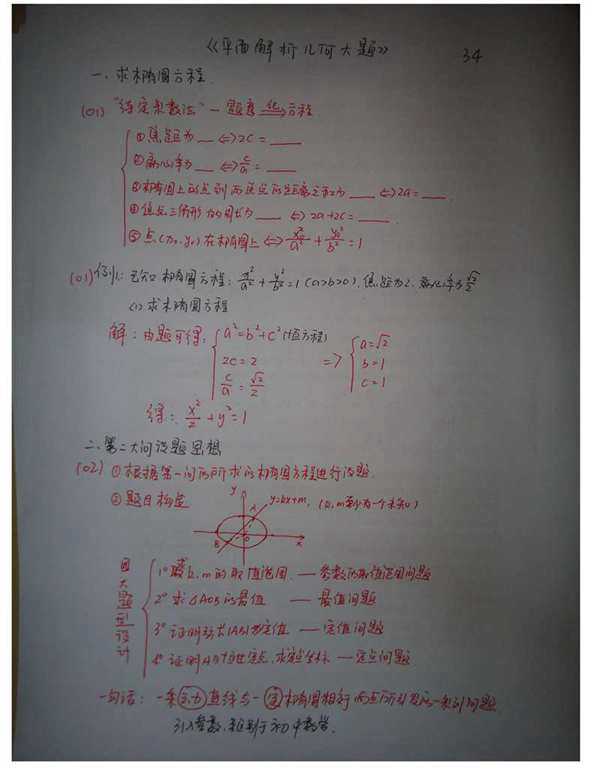 《平面解析几何大题》 34
一、求椭圆方程.
(01) "待定系数法" — 题意 化 方程
① 焦距为 __ ⇔ 2c = __
② 离心率为 __ ⇔ c/a = __
③ 椭圆上的点到两焦点的距离之和为 __ ⇔ 2a = __
④ 焦点三角形的周长为 __ ⇔ 2a+2c = __
⑤ 点(x₀, y₀)在椭圆上 ⇔ x₀²/a² + y₀²/b² = 1
(01) 例1: 已知椭圆方程: x²/a² + y²/b² = 1 (a>b>0), 焦距为2, 离心率为√2/2
(1) 求椭圆方程
解: 由题可得, { a² = b² + c² (恒方程) ⇒ { a=√2
2c = 2 b=1
c/a = √2/2 c=1
得: x²/2 + y² = 1
二、第二大问设题思想
(02) ① 根据第一问所求的椭圆方程进行设题.
② 题目构造 y A y=kx+m, (k,m至少有一个未知) B O x
四大题型设计
1° 求k,m的取值范围. — 参数的取值范围问题
2° 求△AOB的最值 — 最值问题
3° 证明弦长|AB|为定值 — 定值问题
4° 证明AB过定点,求定点坐标 — 定点问题
一句话: 一条动直线与一定椭圆相交两点所引发的一系列问题.
引入参数,